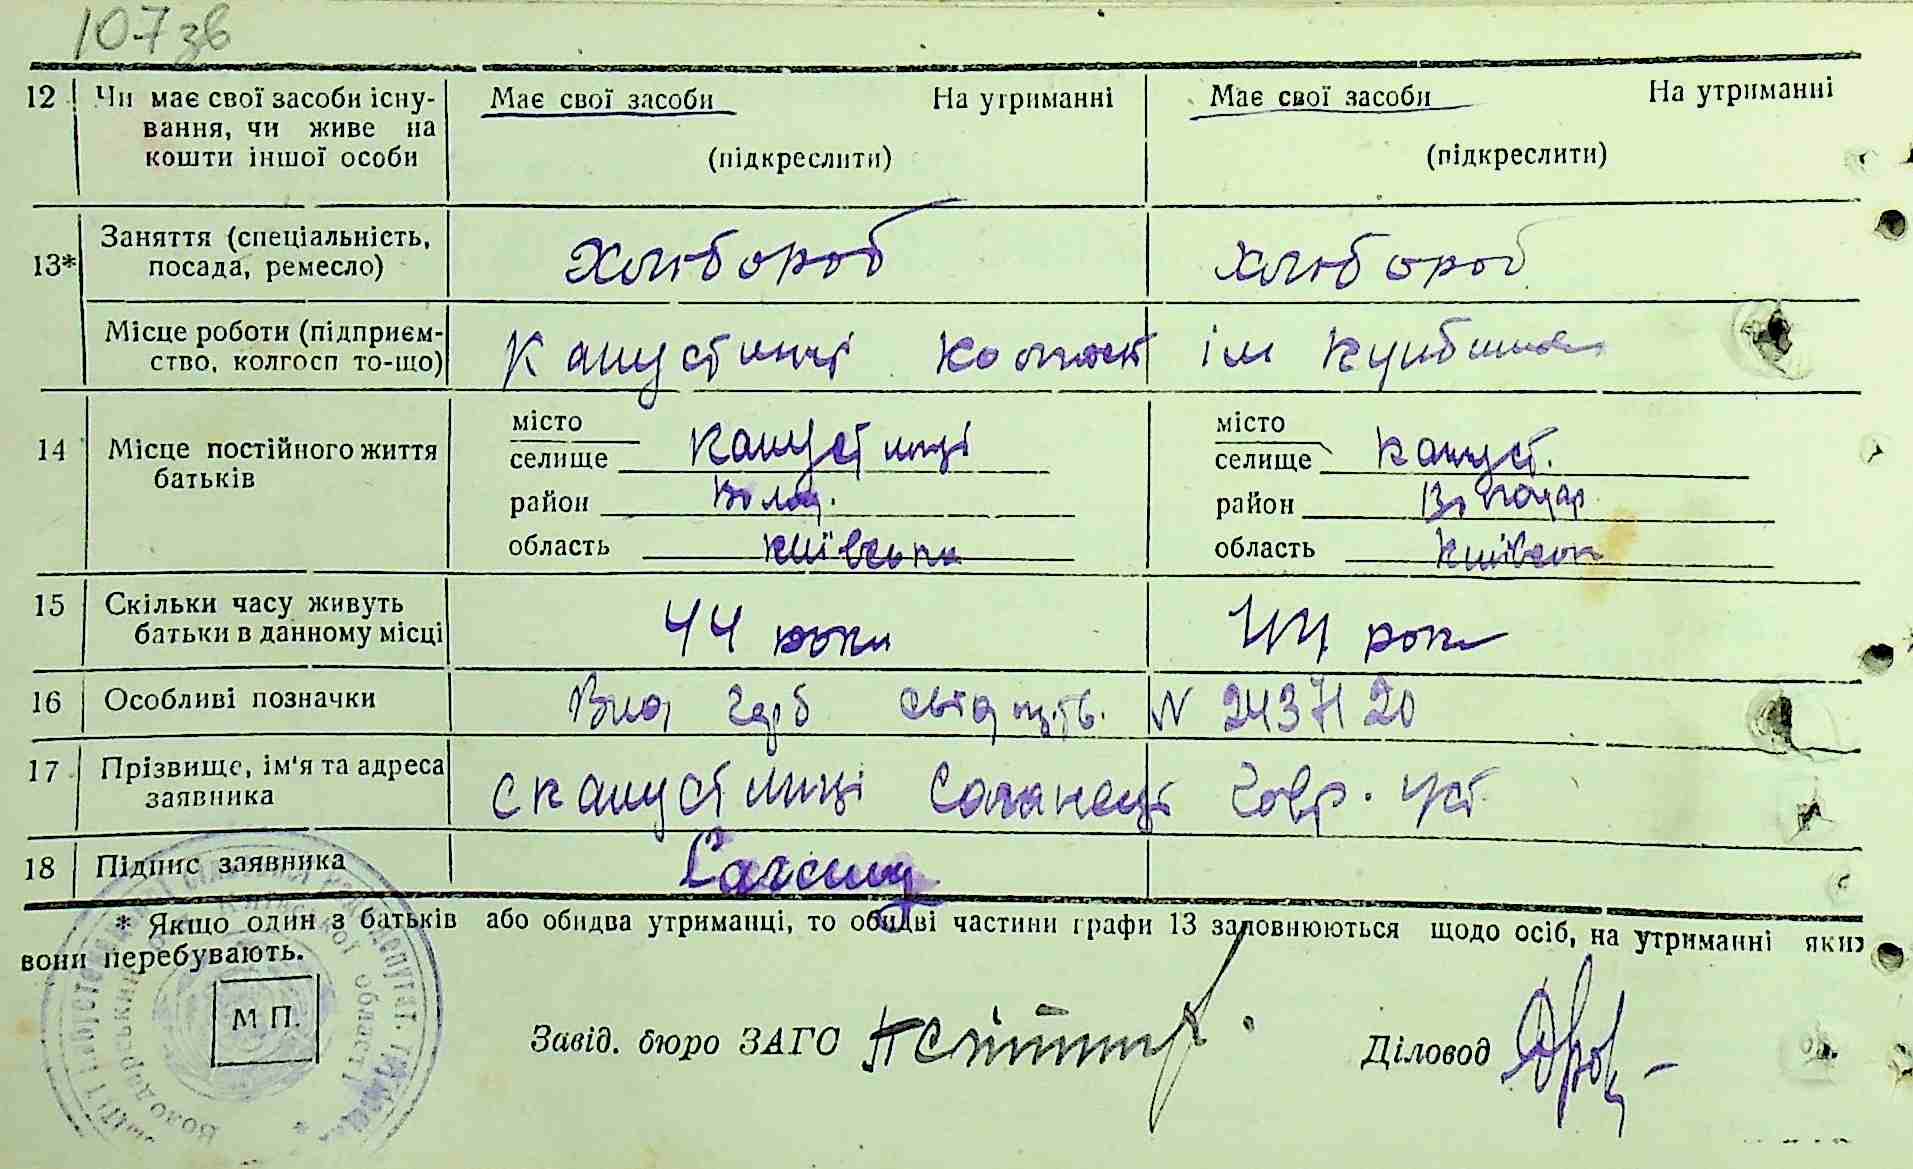 107 зв
12 Чи має свої засоби існу- Має свої засоби На утриманні Має свої засоби На утриманні
вання, чи живе на
кошти іншої особи (підкреслити) (підкреслити)
13* Заняття (спеціальність, посада, ремесло) Хлібороб хлібороб
Місце роботи (підприєм-
ство, колгосп то-що) Капустинці колгосп ім
14 Місце постійного життя
батьків
місто місто
селище Капустинці селище Капуст.
район Волод. район Володар
область Київська область Київськ
15 Скільки часу живуть
батьки в данному місці 44 роки 44 роки
16 Особливі позначки N 2437120
17 Прізвище, ім'я та адреса
заявника с Капустинці
18 Підпис заявника
* Якщо один з батьків або обидва утриманці, то обидві частини графи 13 заповнюються щодо осіб, на утриманні яких
вони перебувають.
М П.
Завід. бюро ЗАГС Діловод